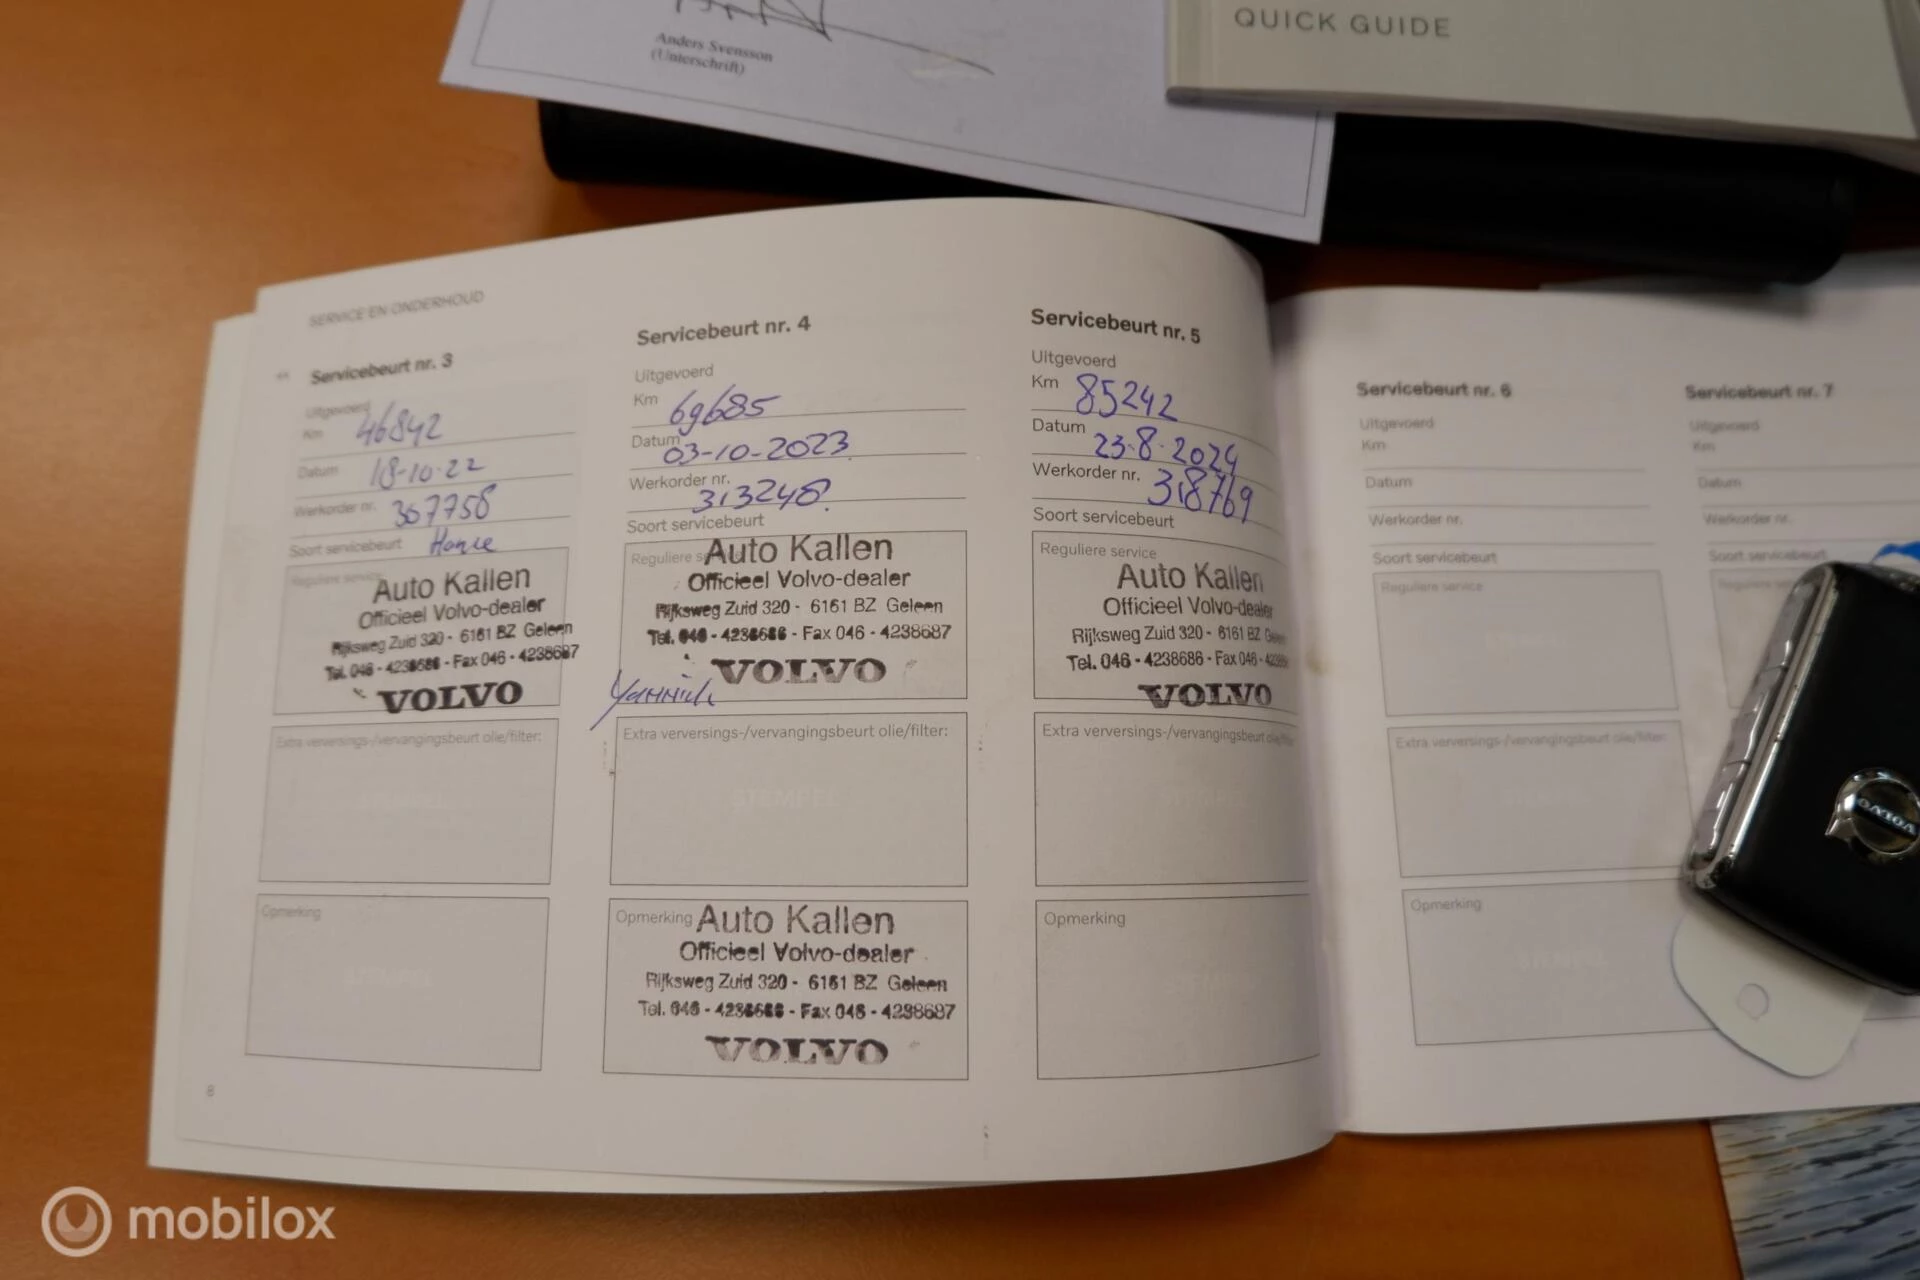 Anders Svensson
(Unterschrift)
QUICK GUIDE
SERVICE EN ONDERHOUD
Servicebeurt nr. 3
Uitgevoerd
Km 46842
Datum 18-10-22
Werkorder nr. 307758
Soort servicebeurt
Reguliere service
Auto Kallen
Officieel Volvo-dealer
Rijksweg Zuid 320 - 6161 BZ Geleen
Tel. 046 - 4238686 - Fax 046 - 4238687
VOLVO
Extra verversings-/vervangingsbeurt olie/filter:
STEMPEL
Opmerking
STEMPEL
8
Servicebeurt nr. 4
Uitgevoerd
Km 69685
Datum 03-10-2023
Werkorder nr. 313248
Soort servicebeurt
Reguliere
Auto Kallen
Officieel Volvo-dealer
Rijksweg Zuid 320 - 6161 BZ Geleen
Tel. 046 - 4238686 - Fax 046 - 4238687
VOLVO
Yannick
Extra verversings-/vervangingsbeurt olie/filter:
STEMPEL
Opmerking
Auto Kallen
Officieel Volvo-dealer
Rijksweg Zuid 320 - 6161 BZ Geleen
Tel. 046 - 4238686 - Fax 046 - 4238687
VOLVO
Servicebeurt nr. 5
Uitgevoerd
Km 85242
Datum 23-8-2024
Werkorder nr. 318769
Soort servicebeurt
Reguliere service
Auto Kallen
Officieel Volvo-dealer
Rijksweg Zuid 320 - 6161 BZ
Tel. 046 - 4238686 - Fax 046 -
VOLVO
Extra verversings-/vervangingsbeurt
STEMPEL
Opmerking
Servicebeurt nr. 6
Uitgevoerd
Km
Datum
Werkorder nr.
Soort servicebeurt
Reguliere service
Extra verversings-/vervangingsbeurt olie/filter:
Opmerking
Servicebeurt nr. 7
Uitgevoerd
Km
Datum
Werkorder nr.
Soort servicebeurt
VOLVO
mobilox